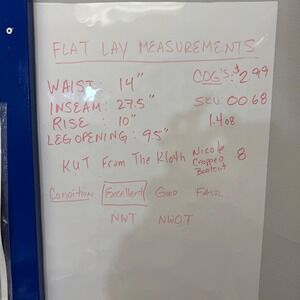 FLAT LAY MEASUREMENTS
WAIST: 14" COG'S: $2.99
INSEAM: 27.5" SKU: 0068
RISE: 10" 1.408
LEG OPENING: 9.5"
KUT From The Kloth Nicole Cropped Bootcut 8
Condition Excellent Good Fair
NWT NWOT